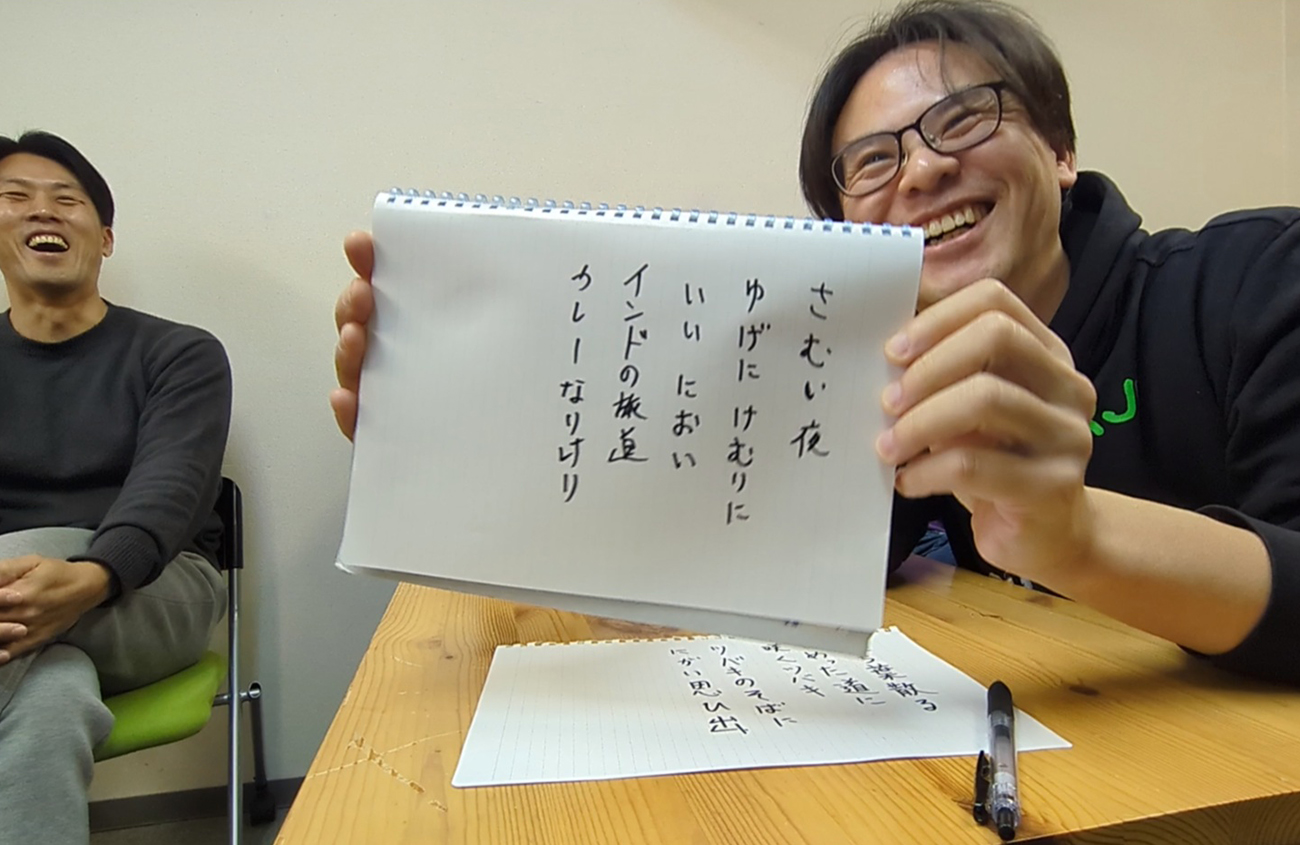 さむい夜
ゆげに けむりに
いい におい
インドの旅道
カレーなりけり
葉散る
めった道に
咲くツバキ
ツバキのそばに
にがい思ひ出
J